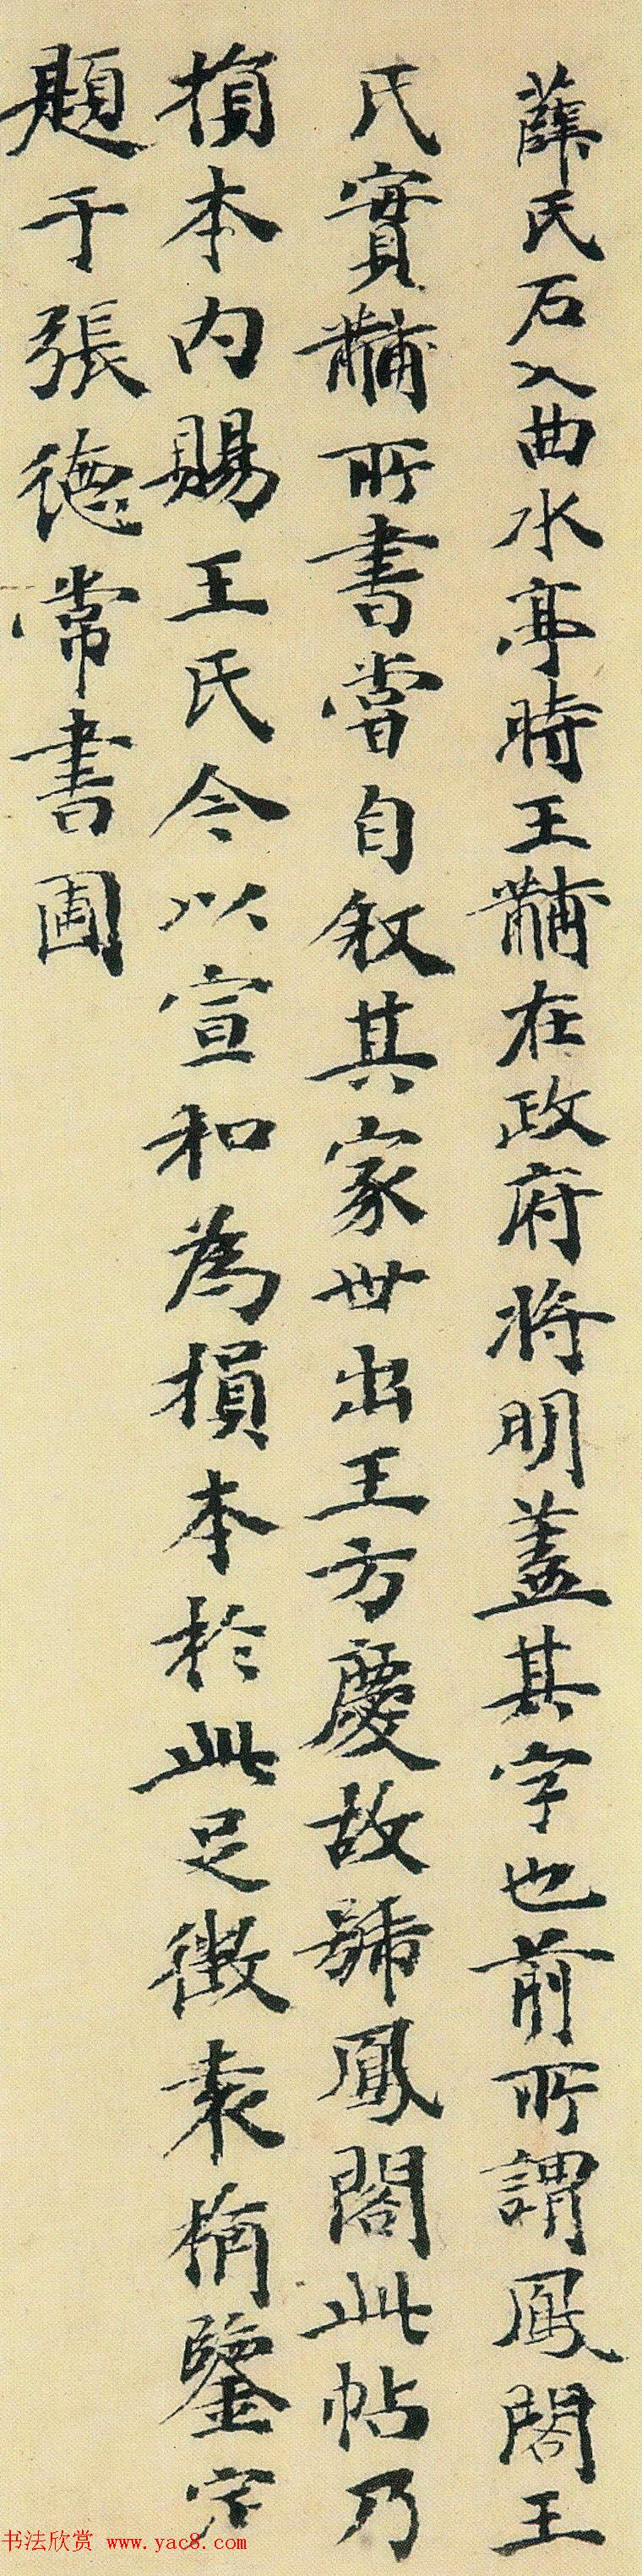 薛氏石入曲水亭時王黼在政府將明蓋其字也前所謂鳳閣王
氏實黼所書嘗自叙其家世出王方慶故號鳳閣此帖乃
損本内賜王氏今以宣和為損本於此足徴袁桷鑒定
題于張德常書圃
书法欣赏 www.yac8.com